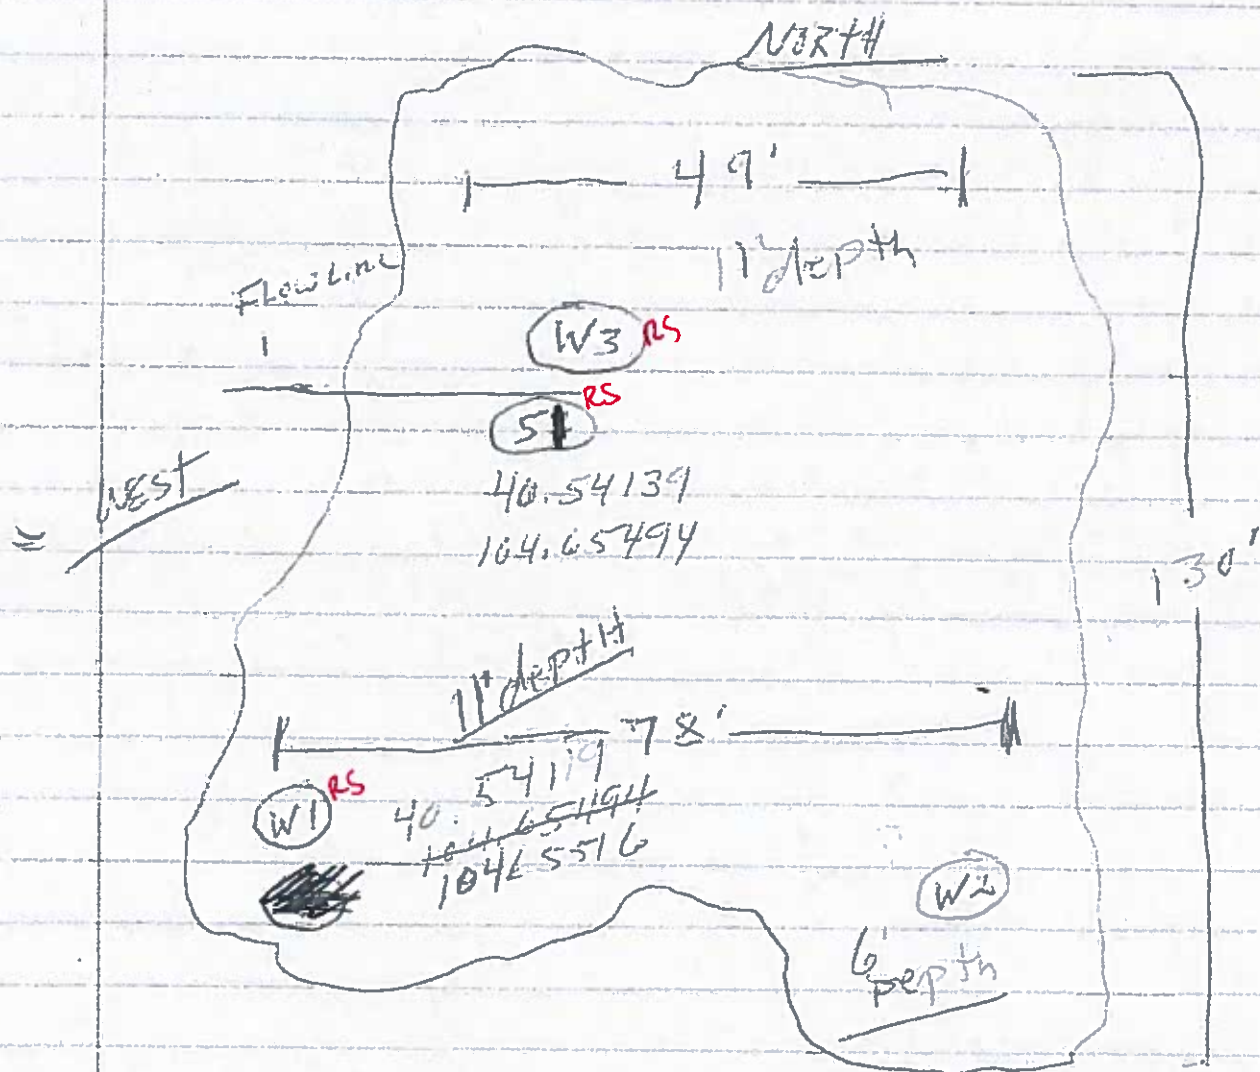 NORTH
49'
11' depth
Flowline
W3 RS
RS
S1
West
40.54139
104.65494
130'
11' depth
78'
RS
W1
40.54119
104.65494
104.65516
W2
6'
Depth